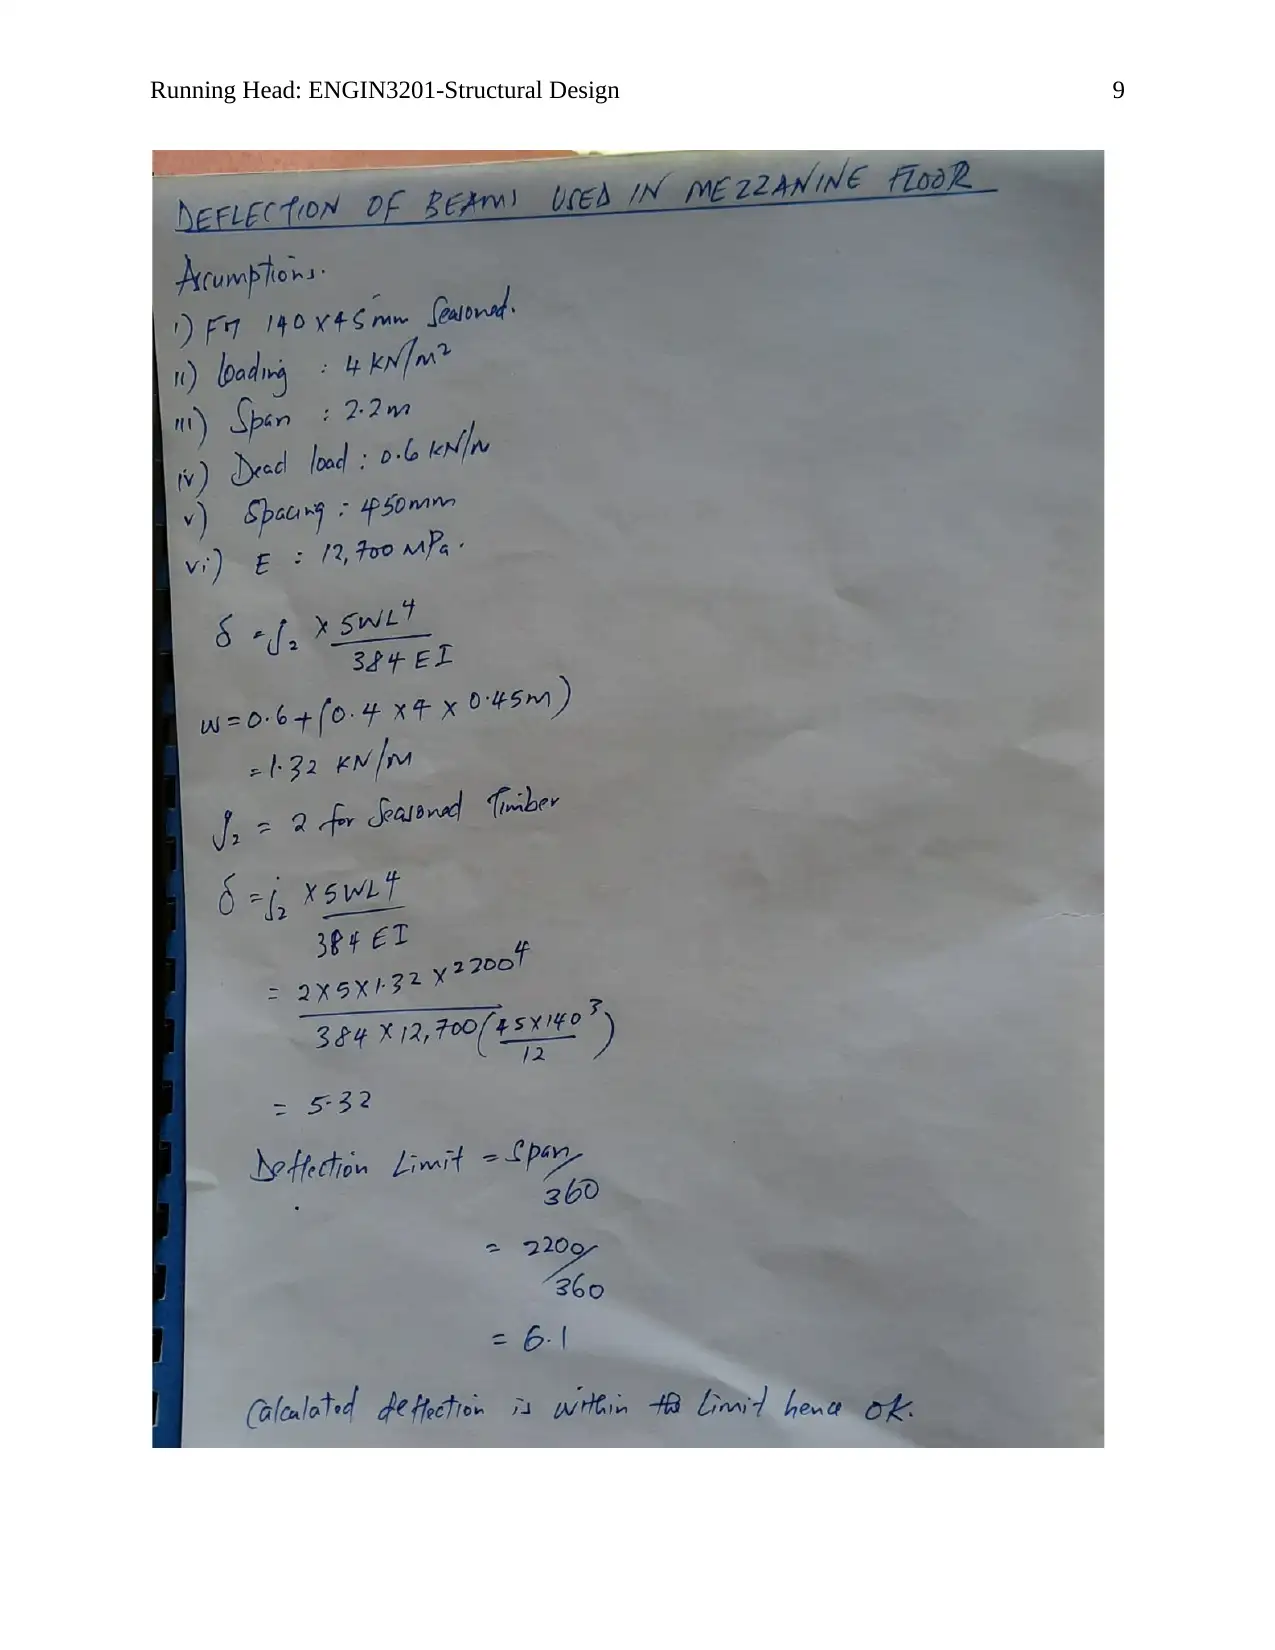 Running Head: ENGIN3201-Structural Design 9
DEFLECTION OF BEAMS USED IN MEZZANINE FLOOR
Assumptions.
i) F17 140 x 45 mm Seasoned.
ii) loading : 4 kN/m²
iii) Span : 2.2m
iv) Dead load : 0.6 kN/m
v) Spacing : 450mm
vi) E : 12,700 MPa.
δ = j₂ x 5WL⁴
384 EI
w = 0.6 + (0.4 x 4 x 0.45m)
= 1.32 KN/m
j₂ = 2 for Seasoned Timber
δ = j₂ x 5WL⁴
384 EI
= 2 x 5 x 1.32 x 2200⁴
384 x 12,700 (45 x 140³)
12
= 5.32
Deflection Limit = Span/
360
= 2200/
360
= 6.1
Calculated deflection is within the limit hence ok.